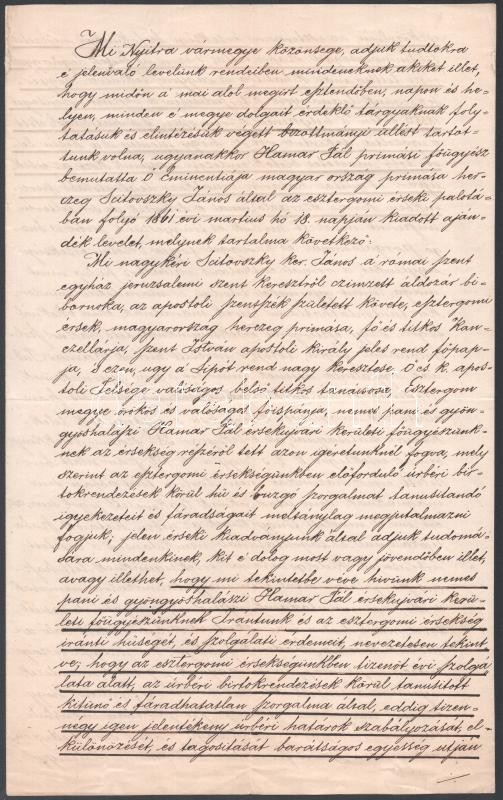 Mi Nyitra vármegye közönsége, adjuk tudtokra
e jelenvaló levelünk rendeiben mindeneknek akiket illet,
hogy midőn a mai alól megirt esztendőben, napon és he-
lyen, minden e megye dolgait érdeklő tárgyaknak foly-
tatásuk és elintézésük végett bizottmányi ülést tartot-
tunk volna, ugyanakkor Hamar Pál primási főügyész
bemutatta Ő Eminentiája magyar ország primása her-
czeg Scitovszky János által az esztergomi érseki palotá-
ban folyó 1861 évi martius hó 18. napján kiadott aján-
dék levelet, melynek tartalma következő:
Mi nagykéri Scitovszky ker. János a római szent
egyház jeruzsalemi szent keresztről czimzett áldozár bi-
bornoka, az apostoli szentszék született követe, esztergomi
érsek, magyarország herczeg primása, fő és titkos Kan-
czellárja, szent István apostoli király jeles rend főpap-
ja, s ezen, ugy a Lipót rend nagy keresztese, Ő cs. k. apos-
toli Felsége valóságos belső titkos tanácsosa, Esztergom
megye örökös és valóságos főispánja, nemes pani és gyön-
gyöshalászi Hamar Pál érsekujvári kerületi főügyészünk-
nek az érsekség részéről tett azon igéretünknél fogva, mely
szerint az esztergomi érsekségünkben előforduló úrbéri bir-
tokrendezések körül hű és buzgó szorgalmat tanusitandó
igyekezeteit és fáradságait méltánylag megjutalmazni
fogjuk, jelen érseki kiadványunk által adjuk tudomá-
sára mindenkinek, kit e dolog most vagy jövendőben illet,
avagy illethet, hogy mi tekintetbe véve hivünk nemes
pani és gyöngyöshalászi Hamar Pál érsekujvári kerü-
leti főügyészünknek Irántunk és az esztergomi érsekség
iránti hűségét, és szolgálati érdemeit, nevezetesen tekint-
ve; hogy az esztergomi érsekségünkben tizenöt évi szolgá-
lata alatt, az úrbéri birtokrendezések körül tanusitott
kitünő és fáradhatatlan szorgalma által, eddig tizen-
négy igen jelentékeny úrbéri határok szabályozását, el-
különözését, és tagositását barátságos egyesség utján